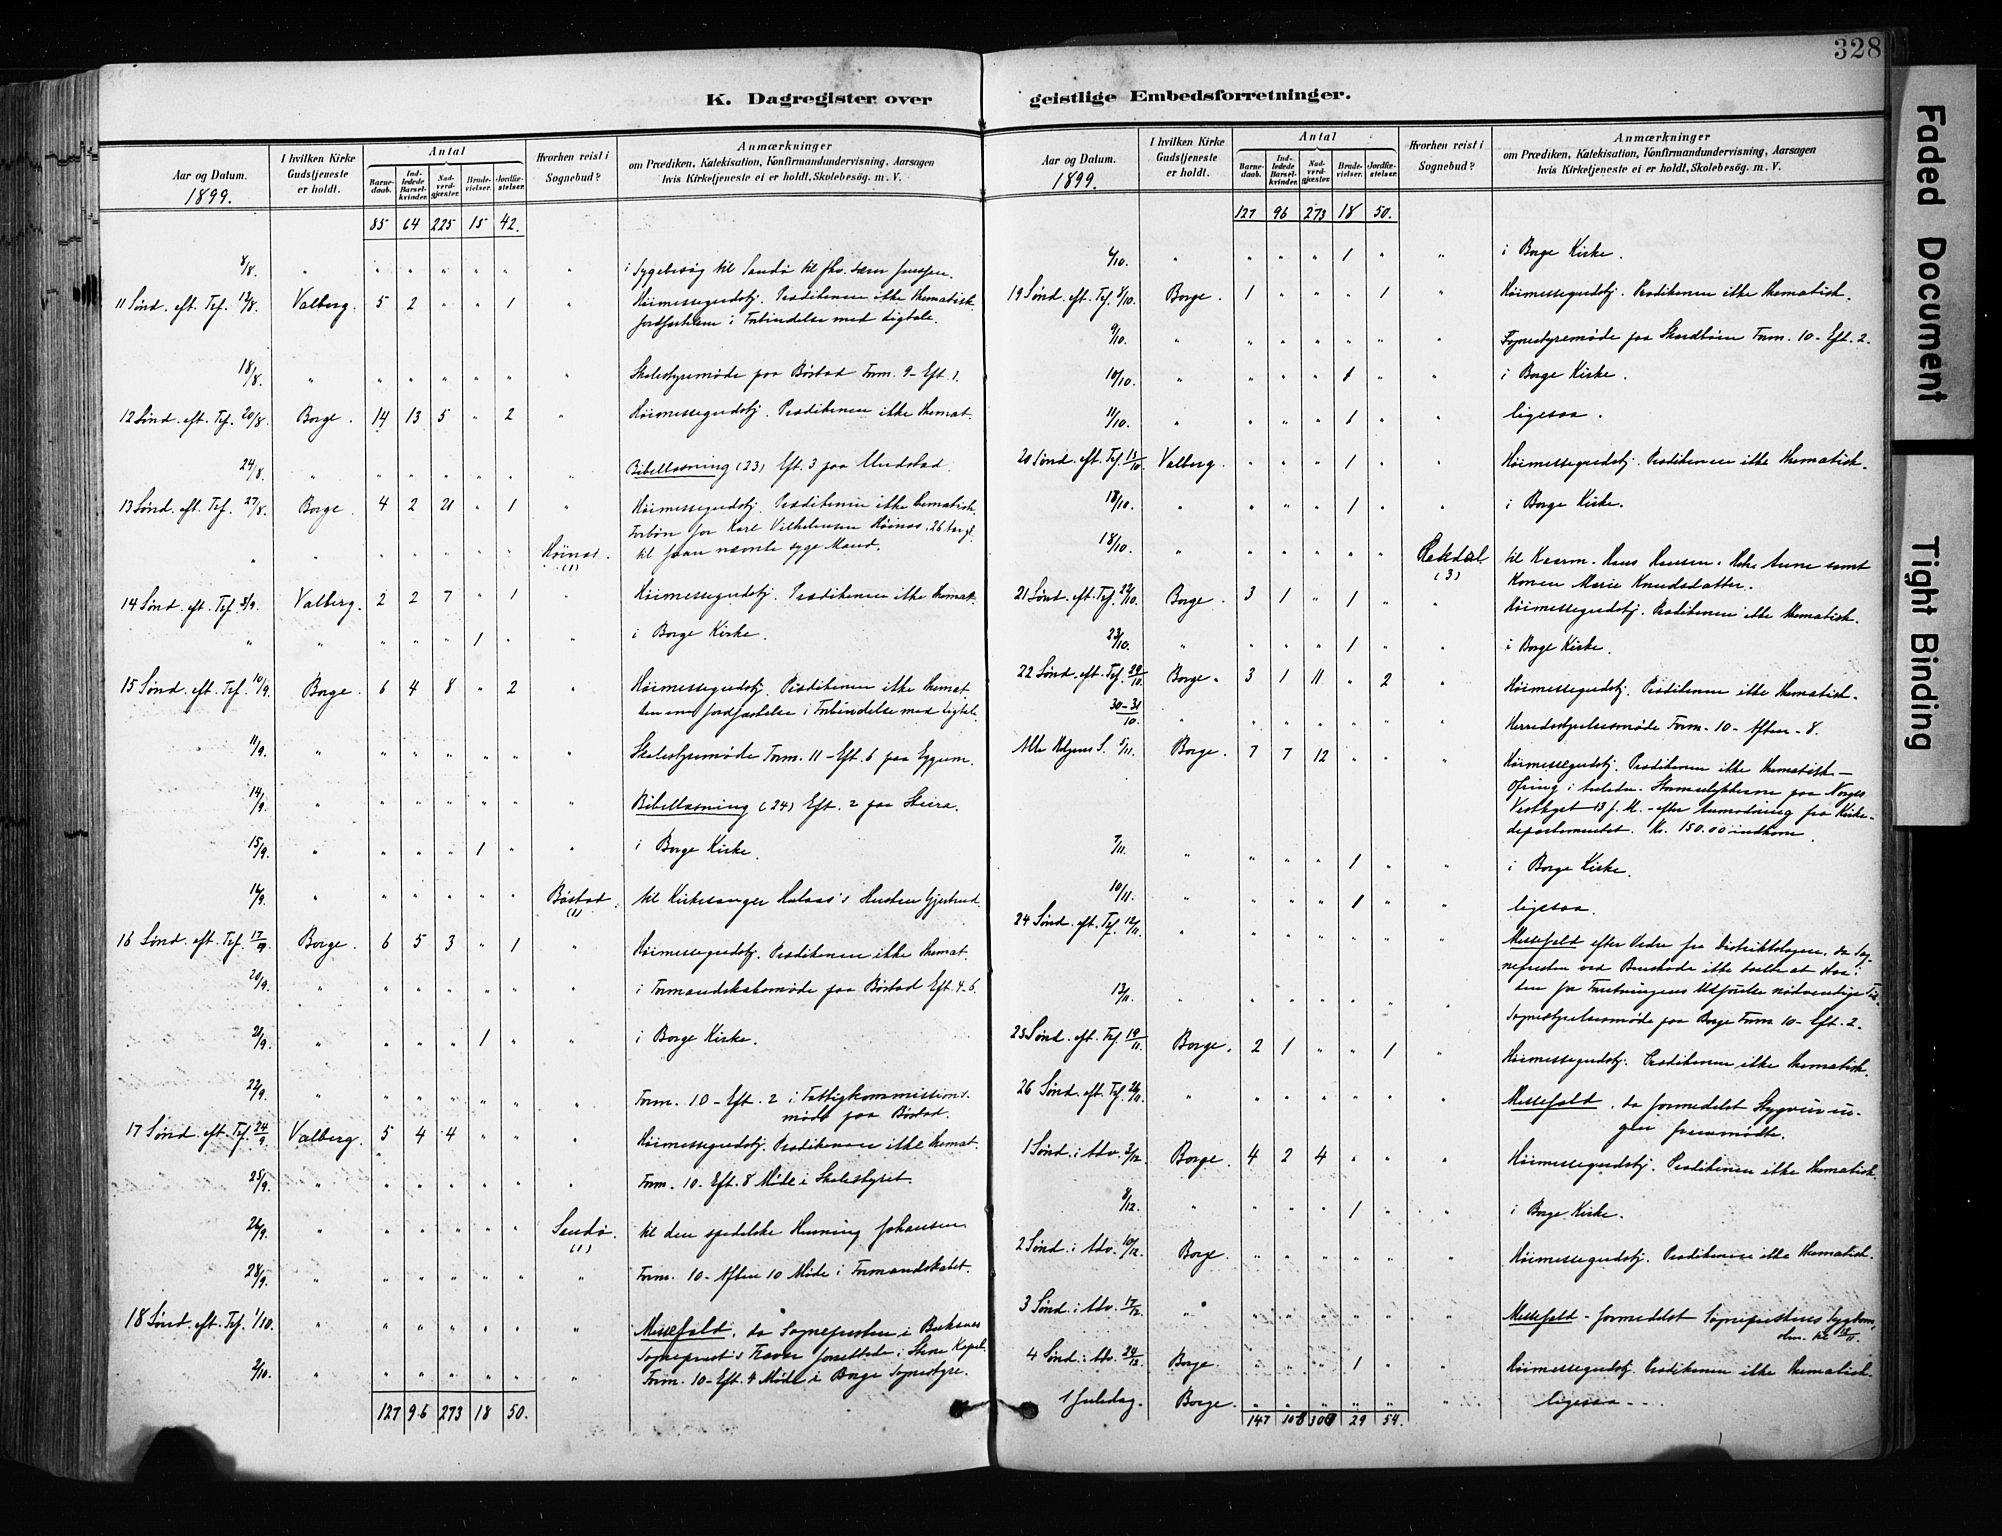 328
K. Dagregister over geistlige Embedsforretninger.
Aar og Datum.
1899.
I hvilken Kirke Gudstjeneste er holdt.
Antal
Barnedaab.
Indledede Barselkvinder.
Nadverdgjester.
Brudevielser.
Jordfæstelser.
Hvorhen reist i Sognebud?
Anmærkninger
om Prædiken, Katekisation, Konfirmandundervisning, Aarsagen
hvis Kirketjeneste ei er holdt, Skolebesøg. m. V.
85 64 225 15 42.
8/8. " " " " " " " i Sygebesøg til Sandö til
11 Sönd. eft. Tref. 13/8. Valberg. 5 2 " " 1 " Höimessegudstj. Prædikenen ikke thematisk.
Jordfæstelsen i Forbindelse med Ligtale.
18/8. " " " " " " " Skolestyremöde paa Böstad Form. 9 - Eft. 1.
12 Sönd. eft. Tref. 20/8. Borge. 14 13 5 " 2 " Höimessegudstj. Prædikenen ikke themat.
24/8. " " " " " " " Bibellæsning (23) Eft. 3 paa Unstad.
13 Sönd. eft. Tref. 27/8. Borge. 4 2 21 " 1 " Höimessegudstj. Prædikenen ikke thematisk.
Forbön for Karl Vilhelmsen Höinæs, 26 Aar gl.
" " " " " " " Höinæs. (1) til foran nævnte syge Mand.
14 Sönd. eft. Tref. 3/9. Valberg. 2 2 7 " 1 " Höimessegudstj. Prædikenen ikke themat.
" " " " " 1 " " i Borge Kirke.
15 Sönd. eft. Tref. 10/9. Borge. 6 4 8 " 2 " Höimessegudstj. Prædikenen ikke themat.
den ene Jordfæstelse i Forbindelse med Ligtale.
11/9. " " " " " " " Skolestyremöde Form. 11 - Eft. 6 paa Eggum.
14/9. " " " " " " " Bibellæsning (24) Eft. 2 paa Steira.
15/9. " " " " 1 " " i Borge Kirke.
16/9. " " " " " " Böstad (1) til Kirkesanger Hustru Gjertrud.
16 Sönd. eft. Tref. 17/9. Borge. 6 5 3 " 1 " Höimessegudstj. Prædikenen ikke themat.
20/9. " " " " " " " i Formandskabsmöde paa Böstad Eft. 4-6.
21/9. " " " " 1 " " i Borge Kirke.
22/9. " " " " " " " Form. 10 - Eft. 2 i Fattigkommissions-
möde paa Böstad.
17 Sönd. eft. Tref. 24/9. Valberg. 5 4 4 " " " Höimessegudstj. Prædikenen ikke themat.
25/9. " " " " " " " Form. 10 - Eft. 8 Möde i Skolestyret.
26/9. " " " " " " Sandö. (1) til den spedalske Henning Johansen
28/9. " " " " " " " Form. 10 - Aften 10 Möde i Formandskabet.
18 Sönd. eft. Tref. 1/10. " " " " " " " Messefald, da Sognepresten i Buksnes
Sogneprest's Fravær forrettede i Kapel.
2/10. " " " " " " " Form. 10 - Eft. 4 Möde i Borge Sognestyre.
127 96 273 18 50.
Aar og Datum.
1899.
I hvilken Kirke Gudstjeneste er holdt.
Antal
Barnedaab.
Indledede Barselkvinder.
Nadverdgjester.
Brudevielser.
Jordfæstelser.
Hvorhen reist i Sognebud?
Anmærkninger
om Prædiken, Katekisation, Konfirmandundervisning, Aarsagen
hvis Kirketjeneste ei er holdt, Skolebesøg. m. V.
127 96 273 18 50.
6/10. " " " " 1 " " i Borge Kirke.
19 Sönd. eft. Tref. 8/10. Borge. 1 " " " 1 " Höimessegudstj. Prædikenen ikke thematisk.
9/10. " " " " " " " Form. 10 - Eft. 2.
10/10. " " " " 1 " " i Borge Kirke.
11/10. " " " " 1 " " ligesaa.
20 Sönd. eft. Tref. 15/10. Valberg. " " " 1 " " Höimessegudstj. Prædikenen ikke thematisk.
18/10. " " " " 1 " " i Borge Kirke.
18/10. " " " " " " (3) til Hans Hansen, Anne samt
Konen Marie Knudsdatter.
21 Sönd. eft. Tref. 22/10. Borge. 3 1 " 1 " " Höimessegudstj. Prædikenen ikke thematisk.
23/10. " " " " 1 " " i Borge Kirke.
22 Sönd. eft. Tref. 29/10. Borge. 3 1 11 " 2 " Höimessegudstj. Prædikenen ikke thematisk.
30-31/10. " " " " " " " Herredsstyrelsesmöde Form. 10 - Aften - 8.
Alle Helgens S. 5/11. Borge. 7 7 12 " " " Höimessegudstj. Prædikenen ikke thematisk -
Ofring i Anledn. Stormulykkerne paa Norges
Vestkyst 13 f. M. - efter Anmodning fra Kirke-
departementet. Kr. 150.00 indkom.
7/11. " " " " 1 " " i Borge Kirke.
10/11. " " " " 1 " " ligesaa.
24 Sönd. eft. Tref. 12/11. " " " " " " " Messefald efter Ordre fra Distriktslægen, da Sog-
nepresten ved Benskade ikke taalte at staa i
den for Forretningens Udförelse nödvendige Tid.
13/11. " " " " " " " Sognestyrelsesmöde paa Borge Form. 10 - Eft. 2.
25 Sönd. eft. Tref. 19/11. Borge. 2 1 " " 1 " Höimessegudstj. Prædikenen ikke thematisk.
26 Sönd. eft. Tref. 26/11. " " " " " " " Messefald, da formedelst Stygveir in-
gen fremmödte.
1 Sönd. i Adv. 3/12. Borge. 4 2 4 " " " Höimessegudstj. Prædikenen ikke thematisk.
8/12. " " " " 1 " " i Borge Kirke.
2 Sönd. i Adv. 10/12. Borge. " " " " " " Höimessegudstj. Prædikenen ikke thematisk.
3 Sönd. i Adv. 17/12. " " " " " " " Messefald - formedelst Sogneprestens Sygdom,
4 Sönd. i Adv. 24/12. Borge. " " " 1 " " Höimessegudstj. Prædikenen ikke thematisk.
1 Juledag. Borge. " " " " " " ligesaa - - .
147 108 300 29 54.
Faded Document
Tight Binding